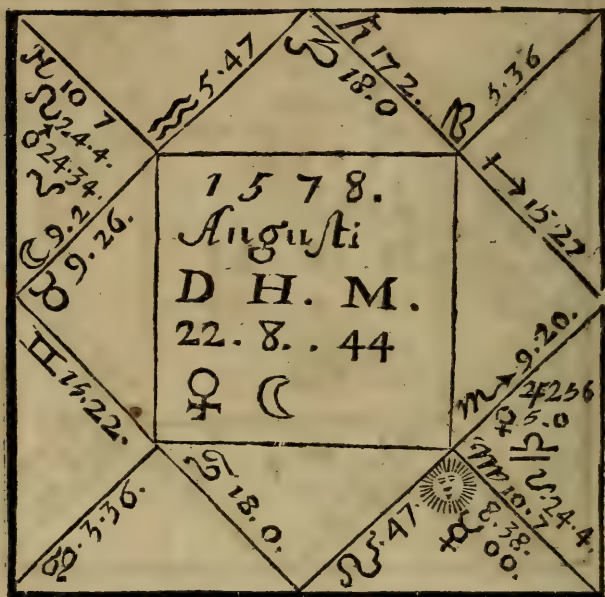 ♓ 10 7
☊ 24.4.
♂ 24.34.
☾ 9.2.
♉ 9.26.
♒ 5.47
♑ 18.0
♄ 17 2.
5.36
♐ 15.22
1 5 7 8.
Auguſti
D H. M.
22. 8. . 44
♀ ☾
♏ 9.20.
♃ 2 56
♀ 5.0
♎
☋ 24.4.
♍ 10.7
♊ 15.22.
3.36.
♋ 18.0.
♌ 5.47.
☉ 8.38.
☿ 00.